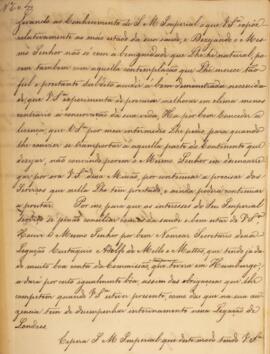 levando ao Conhecimento de S. M. Imperial o que V. Sª expõe
relativamente ao máo estado da sua saude, e Dezejando o Mes-
mo Senhor não só com a benignidade que Lhe he natural, po-
rem tambem com aquella contemplação que Lhe merece tão
fiel e prestante subdito acudir á bem demonstrada necessida-
de que V. Sª experimenta de procurar melhorar em clima menos
contrario á conservação da sua vida, Ha por bem Conceder a
licença, que V. Sª por meu intermedio Lhe pede, para quando
lhe convier, se transportar a aquella parte do Continente que
dezejar, não convindo porem o Mesmo Senhor em
por ora a V. Sª dessa Missão, por continuar a precisar dos
Serviços que nella Lhe tem prestado, e ainda poderá continuar
a prestar. E para que os interesses do Seu Imperial
Serviço se possão conciliar com a saude e bem estar de V. Sª
Houve O Mesmo Senhor por bem Nomear Secretario dessa
Legação Eustaquio Adolfo de Mello e Mattos, que tendo já da-
do muito boa conta da Commissão, que tivera em Hamburgo,
a dará por certo igualmente boa, assim das obrigaçoens que lhe
competem quando V. Sª estiver presente, como das que na sua au-
zencia tem de desempenhar interinamente nessa Legação de
Londres.
Espera S. M. Imperial que deste modo sendo V. Sª